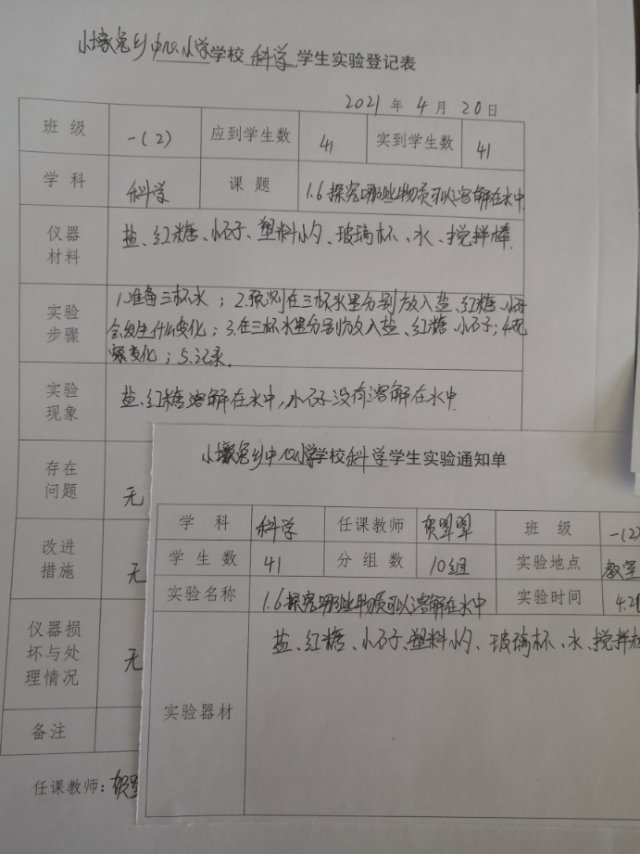 小壕兔乡中心小学学校 科学 学生实验登记表
2021年4月20日
班级 一(2) 应到学生数 41 实到学生数 41
学科 科学 课题 1.6探究哪些物质可以溶解在水中
仪器材料 盐、红糖、小石子、塑料小勺、玻璃杯、水、搅拌棒.
实验步骤 1.准备三杯水;2.预测在三杯水里分别放入盐、红糖、小石子
会发生什么变化;3.在三杯水里分别放入盐、红糖、小石子;4.观
察变化;5.记录.
实验现象 盐、红糖溶解在水中,小石子没有溶解在水中.
存在问题 无
改进措施 无
仪器损坏与处理情况 无
备注
任课教师:贺
小壕兔乡中心小学学校科学学生实验通知单
学科 科学 任课教师 贺翠翠 班级 一(2)
学生数 41 分组数 10组 实验地点 教室
实验名称 1.6探究哪些物质可以溶解在水中 实验时间 4.2
实验器材 盐、红糖、小石子、塑料小勺、玻璃杯、水、搅拌